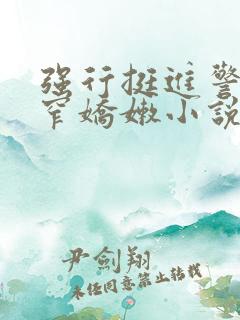 强行挺进警
窄嬌嫩小說
尹劍翔
未经同意禁止转载